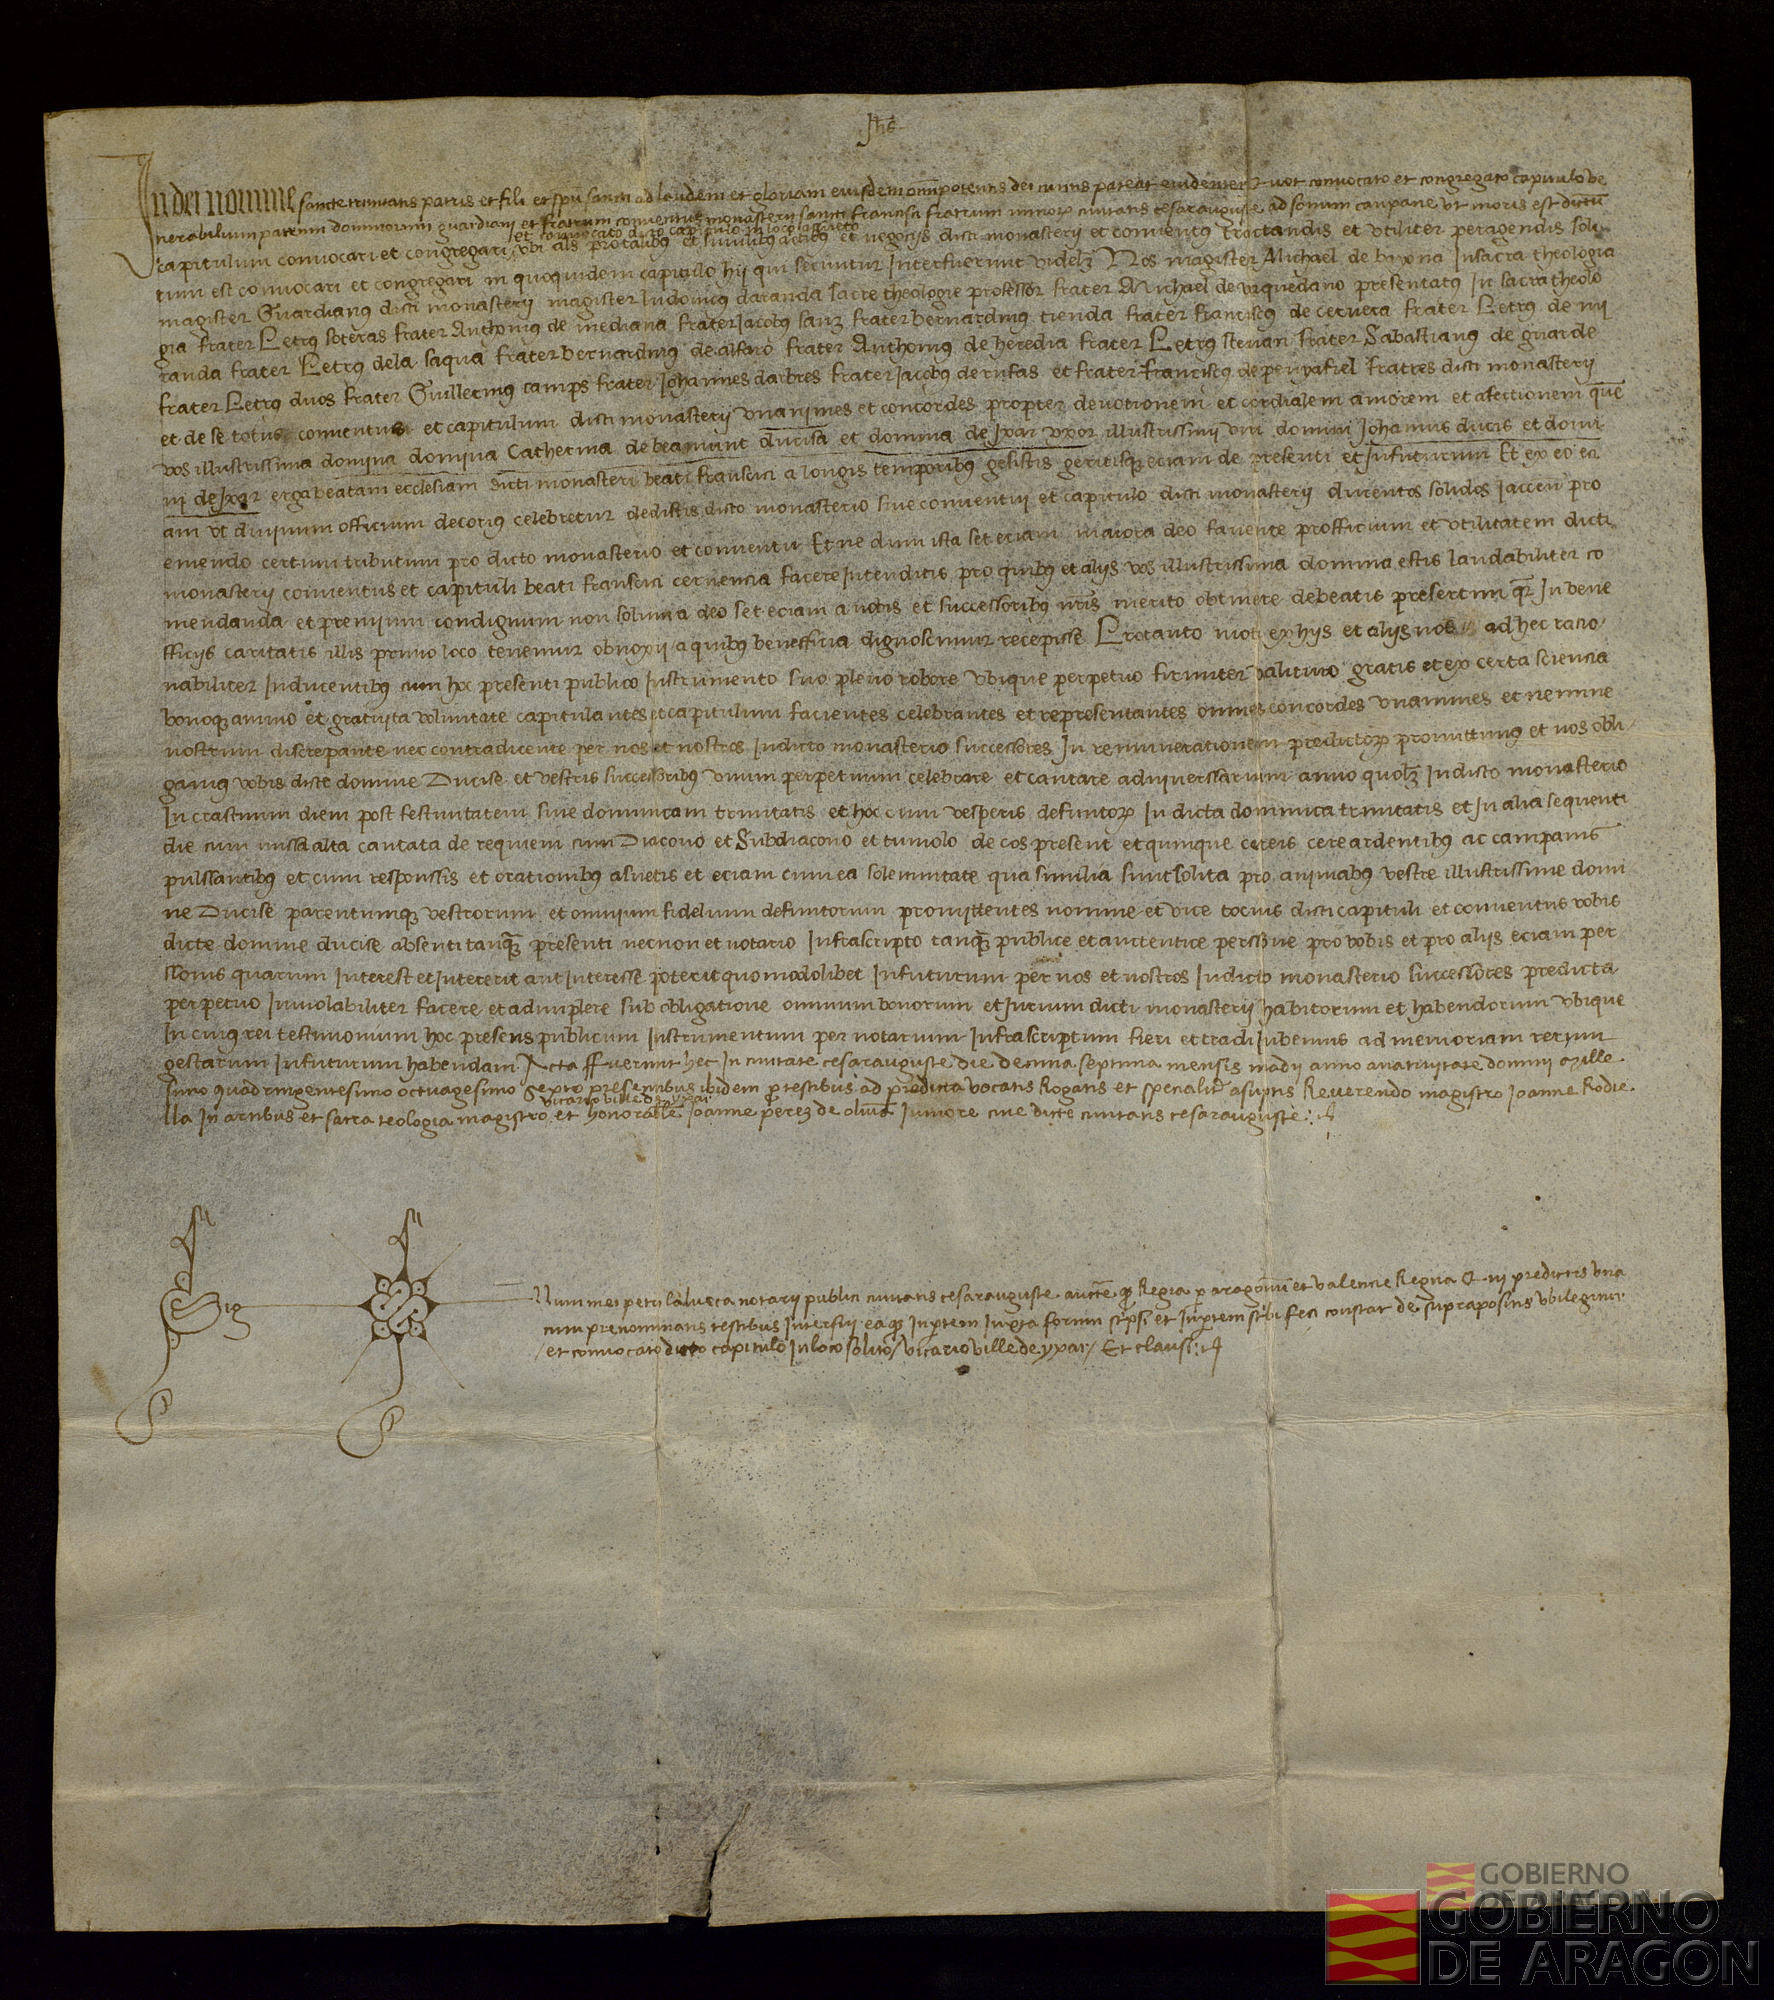 Jhs
In dei nomine sancte trinitatis patris et fili et spũ sancti ad laudem et gloriam eiusdem omĩpotentis dei cuntis pateat euidenter Quot conuocato et congregato capitulo ve
nerabilium patrum dominorum guardiani et fratrum conuentus monasterii sancti francisci fratrum minorꝝ ciuitatis cesarauguste ad sonum canpane vt moris est dictũ
et conuocato dicto capitulo in loco
capitulum conuocari et congregari vbi als pro talibus et similibus actibus et negociis dicti monasterii et conuentus tractandis et vtiliter peragendis soli
tum est conuocari et congregari in quoquidem capitulo hii qui secuntur Interfuerunt videlꝫ Nos magister Michael de In sacra theologia
magister Guardianus dicti monasterii magister ludouicus daranda sacre theologie professor frater Michael de viquedano presentatus In sacra theolo
gia frater Petrus soteras frater Anthonius de mediana frater Jacobus sanz frater bernardinus tienda frater franciscus de ceruera frater Petrus de mi
randa frater Petrus dela saqua frater bernardinus de alfaro frater Anthonius de heredia frater Petrus steuan frater Sabastianus de guarde
frater Petrus duos frater Guillermus camps frater Johannes darbres frater Jacobus de rufas et frater franciscus de penyafiel fratres dicti monasterii
et de se totus conuentus et capitulum dicti monasterii vnanimes et concordes propter deuotionem et cordialem amorem et afectionem que
vos illustrissima domina domina Catherina de beamunt ducisa et domina de Jxar vxor illustrissimi viri domini Johannis ducis et domi
ni de Jxar erga beatam ecclesiam dicti monasteri beati francisci a longis temporibus gesistis geritisqꝫ eciam de presenti et Infuturum Et ex eo eci
am vt diuinum officium decorius celebretur dedistis dicto monasterio siue conuentui et capitulo dicti monasterii ducentos solidos Jaccen̄ pro
emendo certum tributum pro dicto monasterio et conuentu Et ne dum ista set eciam maiora deo fauente profficium et vtilitatem dicti
monasterii conuentus et capituli beati francisci cernencia facere Intenditis pro quibus et aliis vos illustrissima domina estis laudabiliter co
mendanda et premium condignum non solum a deo set eciam a nobis et successoribus nr̃is merito obtinere debeatis presertim qꝛ In bene
fficiis caritatis illis primo loco tenemur obnoxii a quibus benefficia dignoscimur recepisse Protanto moti ex hiis et aliis nos ad hec racio
nabiliter Inducentibus cum hoc presenti publico Instrumento suo pleno robore vbique perpetuo firmiter valituro gratis et ex certa sciencia
bonoqꝫ animo et gratuita voluntate capitulantes et capitulum facientes celebrantes et representantes omnes concordes vnanimes et nemine
nostrum discrepante nec contradicente per nos et nostros In dicto monasterio successores In remunerationem predictorꝝ promittimus et nos obli
gamus vobis dicte domine Ducise et vestris successoribus vnum perpetuum celebrare et cantare adniuerssarium anno quolꝫ In dicto monasterio
In crastinum diem post festiuitatem siue dominicam trinitatis et hoc cum vesperis defuntorꝝ In dicta dominica trinitatis et In alia sequenti
die cum missa alta cantata de requiem cum Diacono et Subdiacono et tumolo de cos present et quinque cereis cere ardentibus ac campanis
pulssantibus et cum responssis et orationibus asuetis et eciam cum ea solemnitate qua similia sunt solita pro animabus vestre illustrissime domi
ne Ducise parentumqꝫ vestrorum et omnium fidelium defuntorum promittentes nomine et vice tocius dicti capituli et conuentus vobis
dicte domine ducise absenti tanqꝫ presenti necnon et notario Infrascripto tanqꝫ publice et auctentice perssone pro vobis et pro aliis eciam per
ssonis quarum Interest et Intererit aut Interesse poterit quomodolibet Infuturum per nos et nostros In dicto monasterio successores predicta
perpetuo Inuiolabiliter facere et adimplere sub obligatione omnium bonorum et Jurium dicti monasterii habitorum et habendorum vbique
In cuius rei testimonium hoc presens publicum Instrumentum per notarium Infrascriptum fieri et tradi Jubemus ad memoriam rerum
gestarum Infuturum habendam Acta ffuerunt hec In ciuitate cesarauguste die decima septima mensis madii anno anatiuitate domini Mille
simo quadringentesimo octuagesimo Sexto presentibus ibidem pro testibus ad predicta vocatis Rogatis et specialiter asuptis Reuerendo magistro Joanne Rodie
vicario ville de yxar
lla In artibus et sacra teologia magistro et honorabile Joanne perez de oliuan Juniore ciue dicte ciuitatis cesarauguste
Sig num mei petri lalueca notarii publici ciuitatis cesarauguste auctẽ qꝫ Regia ꝑ aragonũ et valencie Regna Qui predictis vna
cum prenominatis testibus Interfui eaqꝫ In ꝑtem Juxta forum scripsi et In ꝑtem scribi feci constat de suprapositis vbi legitur
/et conuocato dicto capitulo In loco solito/ vicario ville de yxar/ Et clausi
GOBIERNO
GOBIERNO
DE ARAGON